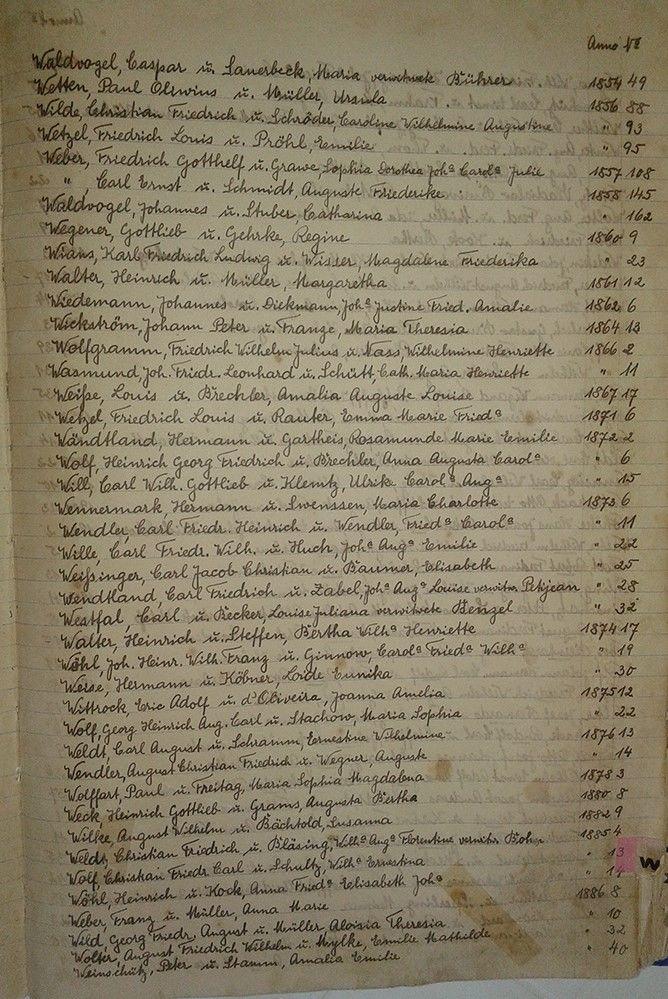 Anno No
Waldvogel, Caspar u. Sauerbeck, Maria verwitwete Bührer 1854 49
Wetten, Paul u. Müller, Ursula 1856 88
Wilde, Christian Friedrich u. Schröder, Caroline Wilhelmine Augustine " 93
Wetzel, Friedrich Louis u. Pröhl, Emilie " 95
Weber, Friedrich Gotthelf u. Grawe, Sophia Dorothea Joha Carola Julie 1857 108
" , Carl Ernst u. Schmidt, Auguste Friederike 1858 145
Waldvogel, Johannes u. Stuber, Catharina " 162
Wegener, Gottlieb u. Gehrke, Regine 1860 9
Wians, Karl Friedrich Ludwig u. Wisser, Magdalene Friederika " 23
Walter, Heinrich u. Müller, Margaretha 1861 12
Wiedemann, Johannes u. Diekmann, Joha Justine Fried. Amalie 1862 6
Wickström, Johann Peter u. Franze, Maria Theresia 1864 13
Wolfgramm, Friedrich Wilhelm Julius u. Nass, Wilhelmine Henriette 1866 2
Wasmund, Joh. Friedr. Leonhard u. Schütt, Cath. Maria Henriette " 11
Weiße, Louis u. Brechler, Amalia Auguste Louise 1867 17
Wetzel, Friedrich Louis u. Rauter, Emma Marie Frieda 1871 6
Wändtland, Hermann u. Gartheis, Rosamunde Marie Emilie 1872 2
Wolf, Heinrich Georg Friedrich u. Brechler, Anna Augusta Carola " 6
Will, Carl Wilh. Gottlieb u. Klemtz, Ulrike Carola Auga " 15
Wennermark, Hermann u. Swenssen, Maria Charlotte 1873 6
Wendler, Carl Friedr. Heinrich u. Wendler, Frieda Carola " 11
Wille, Carl Friedr. Wilh. u. Huch, Joha Auga Emilie " 22
Weissinger, Carl Jacob Christian u. Baumer, Elisabeth " 25
Wendtland, Carl Friedrich u. Zabel, Joha Auga Louise verwitw. Petijean " 28
Westfal, Carl u. Becker, Louise Juliana verwitwete Benzel " 32
Walter, Heinrich u. Steffen, Bertha Wilha Henriette 1874 17
Wöhl, Joh. Heinr. Wilh. Franz u. Ginnow, Carola Frieda Wilha " 19
Weise, Hermann u. Köbner, Loide Eunika " 30
Wittrock, Eric Adolf u. d'Oliveira, Joanna Amelia 1875 12
Wolf, Georg Heinrich Aug. Carl u. Stachow, Maria Sophia " 22
Weldt, Carl August u. Schramm, Ernestine Wilhelmine 1876 13
Wendler, August Christian Friedrich u. Wegner, Auguste " 14
Wolffart, Paul u. Freitag, Maria Sophia Magdalena 1878 3
Weck, Heinrich Gottlieb u. Grams, Augusta Bertha 1880 8
Wilke, August Wilhelm u. Bächtold, Susanna 1882 9
Weldt, Christian Friedrich u. Bläsing, Wilha Auga Florentine verwitw. Bohn 1885 4
Wolf, Christian Friedr. Carl u. Schultz, Wilha Ernestina " 13
Wöhl, Heinrich u. Kock, Anna Frieda Elisabeth Joha " 14
Weber, Franz u. Müller, Anna Marie 1886 8
Wild, Georg Friedr. August u. Müller Aloisia Theresia " 10
Wolter, August Friedrich Wilhelm u. Mylke, Emilie Mathilde " 32
Weinschütz, Peter u. Stamm, Amalia Emilie " 40
W